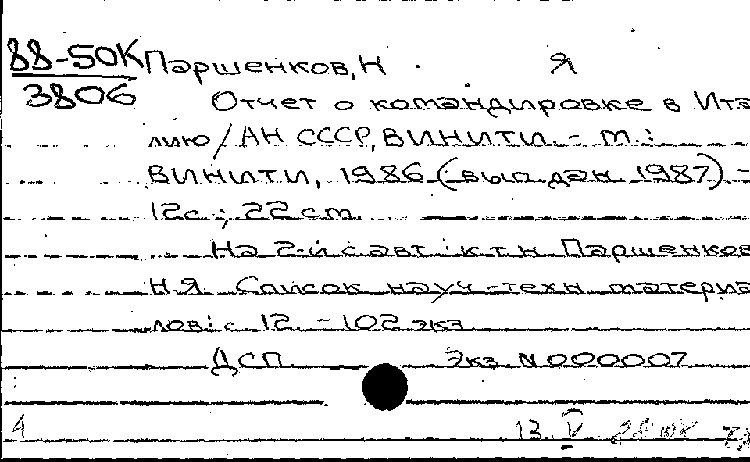 88-50К Паршенков, Н Я
3806
Отчет о командировке в Ита
лию / АН СССР, ВИНИТИ. - М.:
ВИНИТИ, 1986 (вып. дан. 1987) -
12с.; 22 см
На 2-й с авт.: к.т.н Паршенков
Н.Я Список науч-техн материа
лов: с 12 - 102 экз
ДСП Экз. N000007
4 13 V